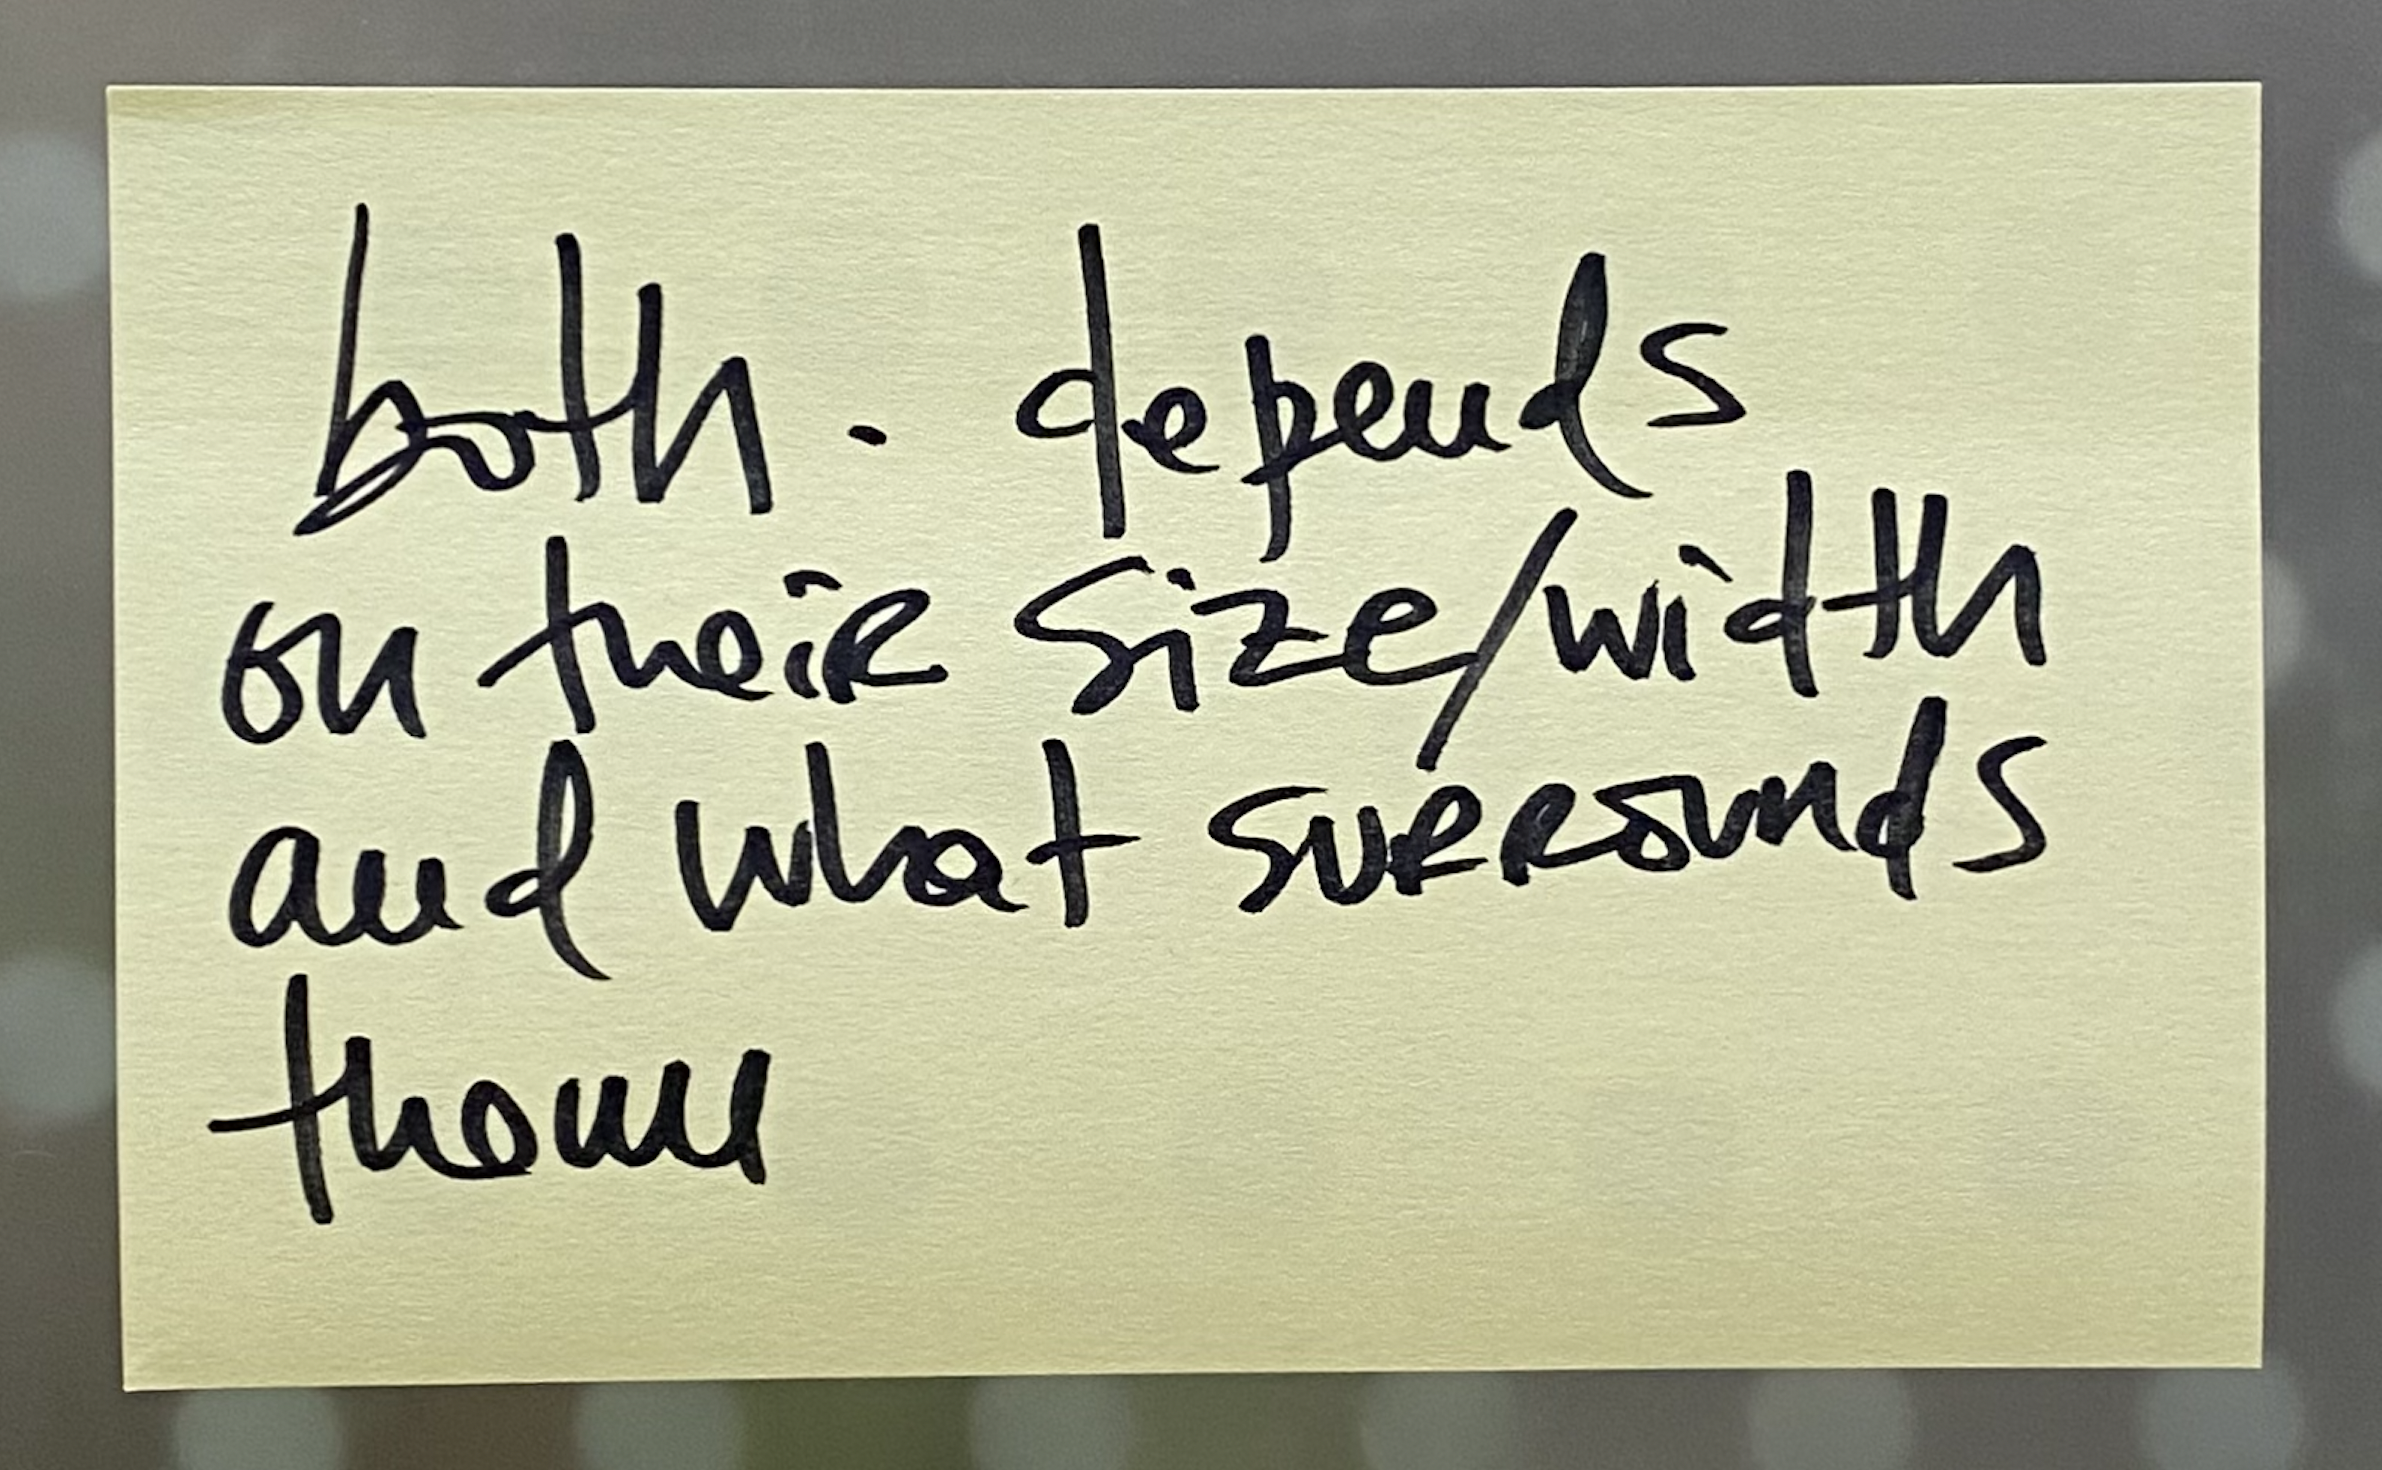 both. depends
on their size/width
and what surrounds
them